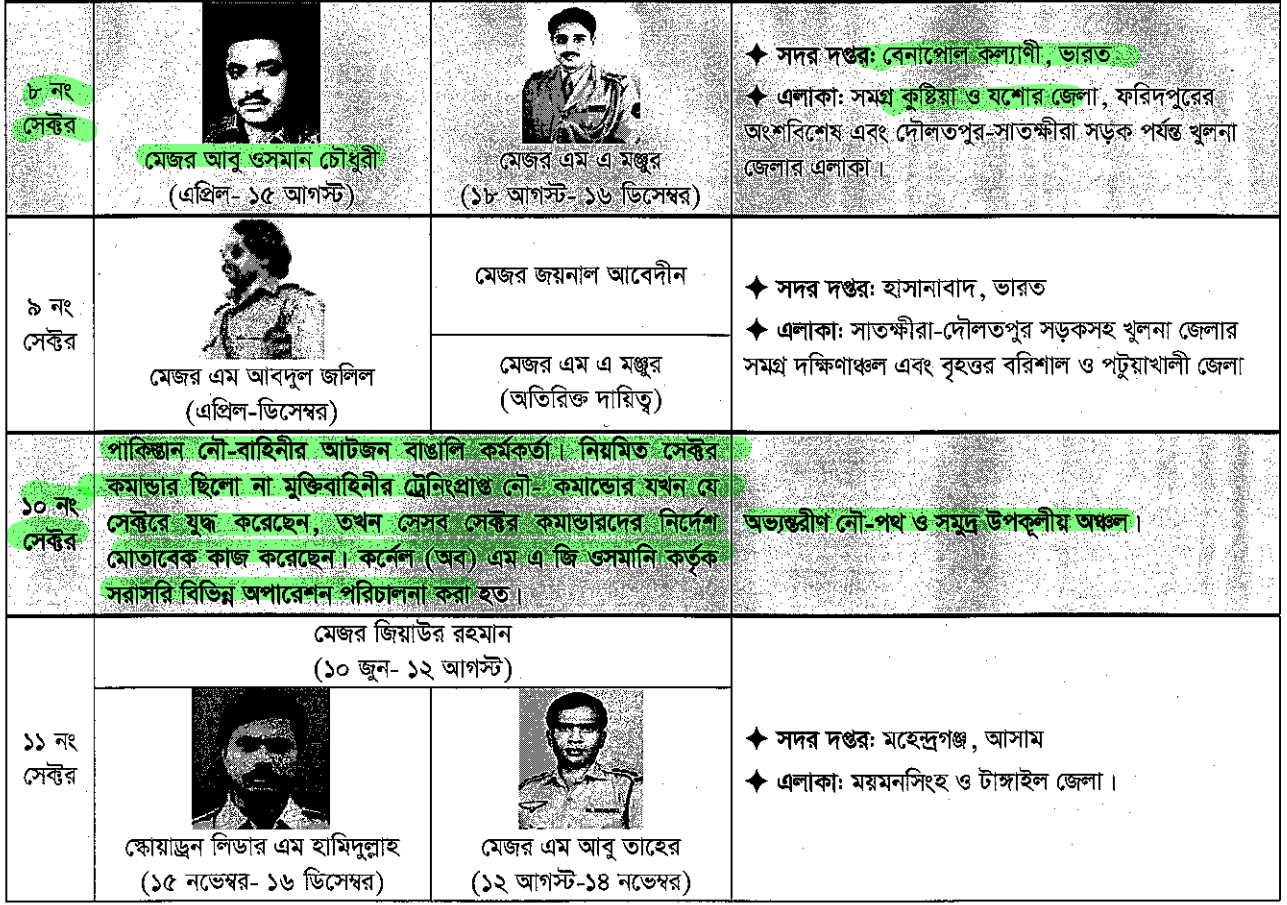 ৮ নং
সেক্টর
মেজর আবু ওসমান চৌধুরী
(এপ্রিল- ১৫ আগস্ট)
মেজর এম এ মঞ্জুর
(১৮ আগস্ট- ১৬ ডিসেম্বর)
✦ সদর দপ্তর: বেনাপোল কল্যাণী, ভারত
✦ এলাকা: সমগ্র কুষ্টিয়া ও যশোর জেলা, ফরিদপুরের
অংশবিশেষ এবং দৌলতপুর-সাতক্ষীরা সড়ক পর্যন্ত খুলনা
জেলার এলাকা।
৯ নং
সেক্টর
মেজর এম আবদুল জলিল
(এপ্রিল-ডিসেম্বর)
মেজর জয়নাল আবেদীন
মেজর এম এ মঞ্জুর
(অতিরিক্ত দায়িত্ব)
✦ সদর দপ্তর: হাসানাবাদ, ভারত
✦ এলাকা: সাতক্ষীরা-দৌলতপুর সড়কসহ খুলনা জেলার
সমগ্র দক্ষিণাঞ্চল এবং বৃহত্তর বরিশাল ও পটুয়াখালী জেলা
১০ নং
সেক্টর
পাকিস্তান নৌ-বাহিনীর আটজন বাঙালি কর্মকর্তা। নিয়মিত সেক্টর
কমান্ডার ছিলো না মুক্তিবাহিনীর ট্রেনিংপ্রাপ্ত নৌ- কমান্ডোর যখন যে
সেক্টরে যুদ্ধ করেছেন, তখন সেসব সেক্টর কমান্ডারদের নির্দেশ
মোতাবেক কাজ করেছেন। কর্নেল (অব) এম এ জি ওসমানি কর্তৃক
সরাসরি বিভিন্ন অপারেশন পরিচালনা করা হত।
অভ্যন্তরীণ নৌ-পথ ও সমুদ্র উপকূলীয় অঞ্চল।
১১ নং
সেক্টর
মেজর জিয়াউর রহমান
(১০ জুন- ১২ আগস্ট)
স্কোয়াড্রন লিডার এম হামিদুল্লাহ
(১৫ নভেম্বর- ১৬ ডিসেম্বর)
মেজর এম আবু তাহের
(১২ আগস্ট-১৪ নভেম্বর)
✦ সদর দপ্তর: মহেন্দ্রগঞ্জ, আসাম
✦ এলাকা: ময়মনসিংহ ও টাঙ্গাইল জেলা।